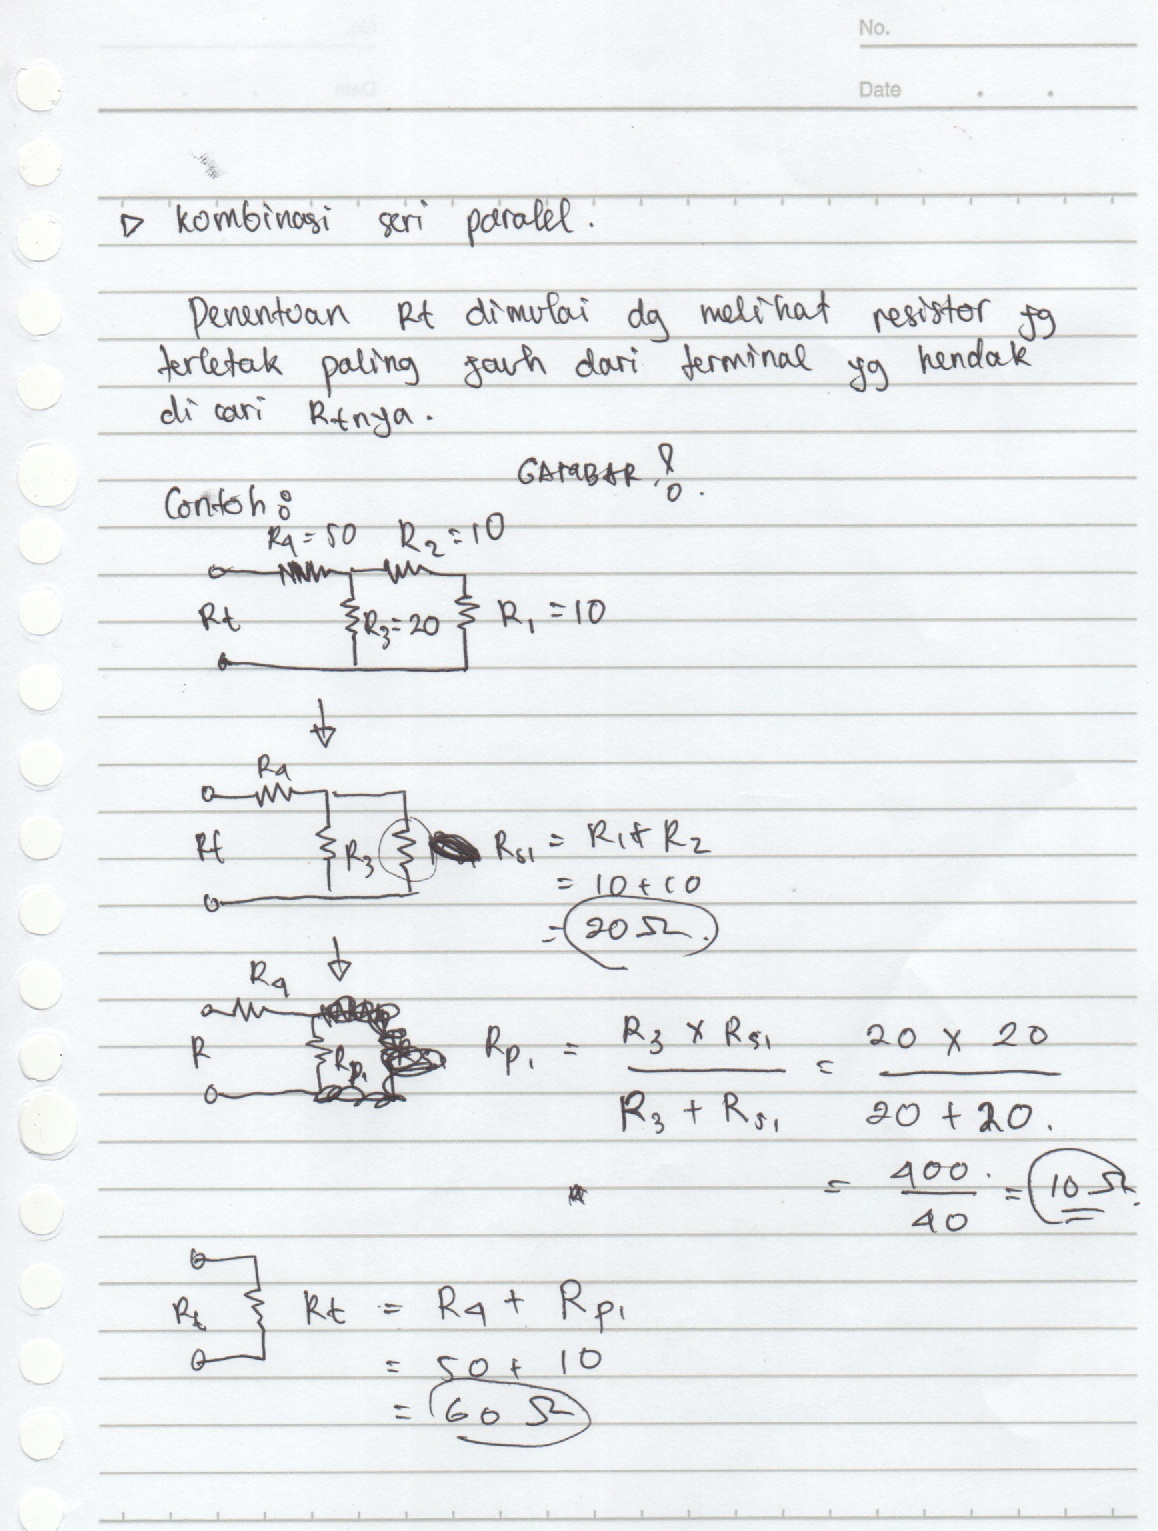 No.
Date
▷ kombinasi seri paralel.
Penentuan Rt dimulai dg melihat resistor yg
terletak paling jauh dari terminal yg hendak
di cari Rtnya.
GAMBAR !
Contoh :
R4 = 50 R2 = 10
Rt R3 = 20 R1 = 10
↓
R4
Rt R3 Rs1 = R1 + R2
= 10 + 10
= 20 Ω.
↓
R4
R Rp1 Rp1 = R3 x Rs1 / R3 + Rs1 = 20 x 20 / 20 + 20.
= 400 / 40 = 10 Ω
Rt Rt = R4 + Rp1
= 50 + 10
= 60 Ω